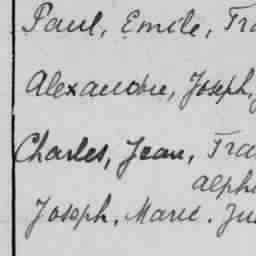 Paul, Emile, Fra
Alexandre, Joseph,
Charles, Jean, Fra
alph
Joseph, Marie. Ju